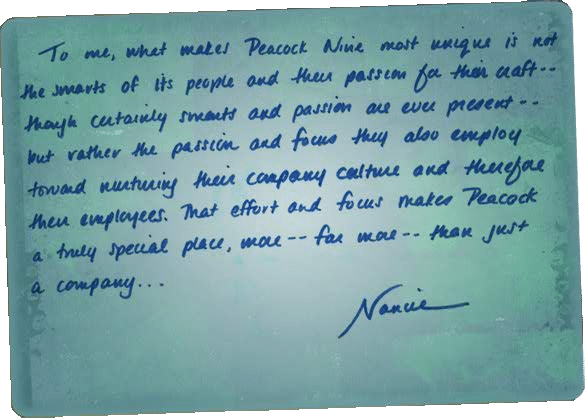 To me, what makes Peacock Nine most unique is not
the smarts of its people and their passion for their craft--
though certainly smarts and passion are ever present--
but rather the passion and focus they also employ
toward nurturing their company culture and therefore
their employees. That effort and focus makes Peacock
a truly special place, more -- far more -- than just
a company...
Nancie